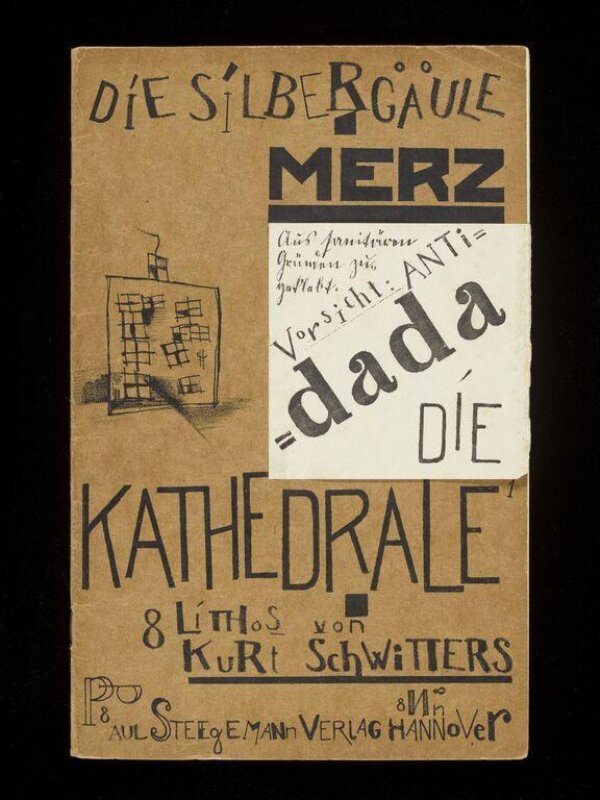 DIE SILBERGÄULE
MERZ
Aus sanitären
Gründen zu=
geklebt.
Vorsicht: ANTI=
=dada
DIE
KATHEDRALE
1
8 LITHOS von
KURT SCHWITTERS
PAUL STEEGEMANN VERLAG HANNOVER